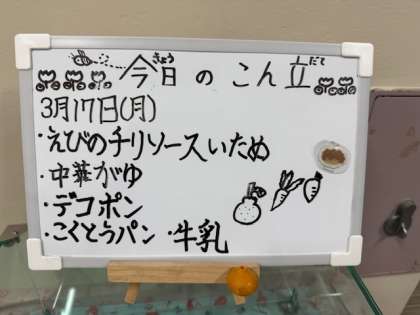 今日のこん立
3月17日(月)
・えびのチリソースいため
・中華がゆ
・デコポン
・こくとうパン ・牛乳